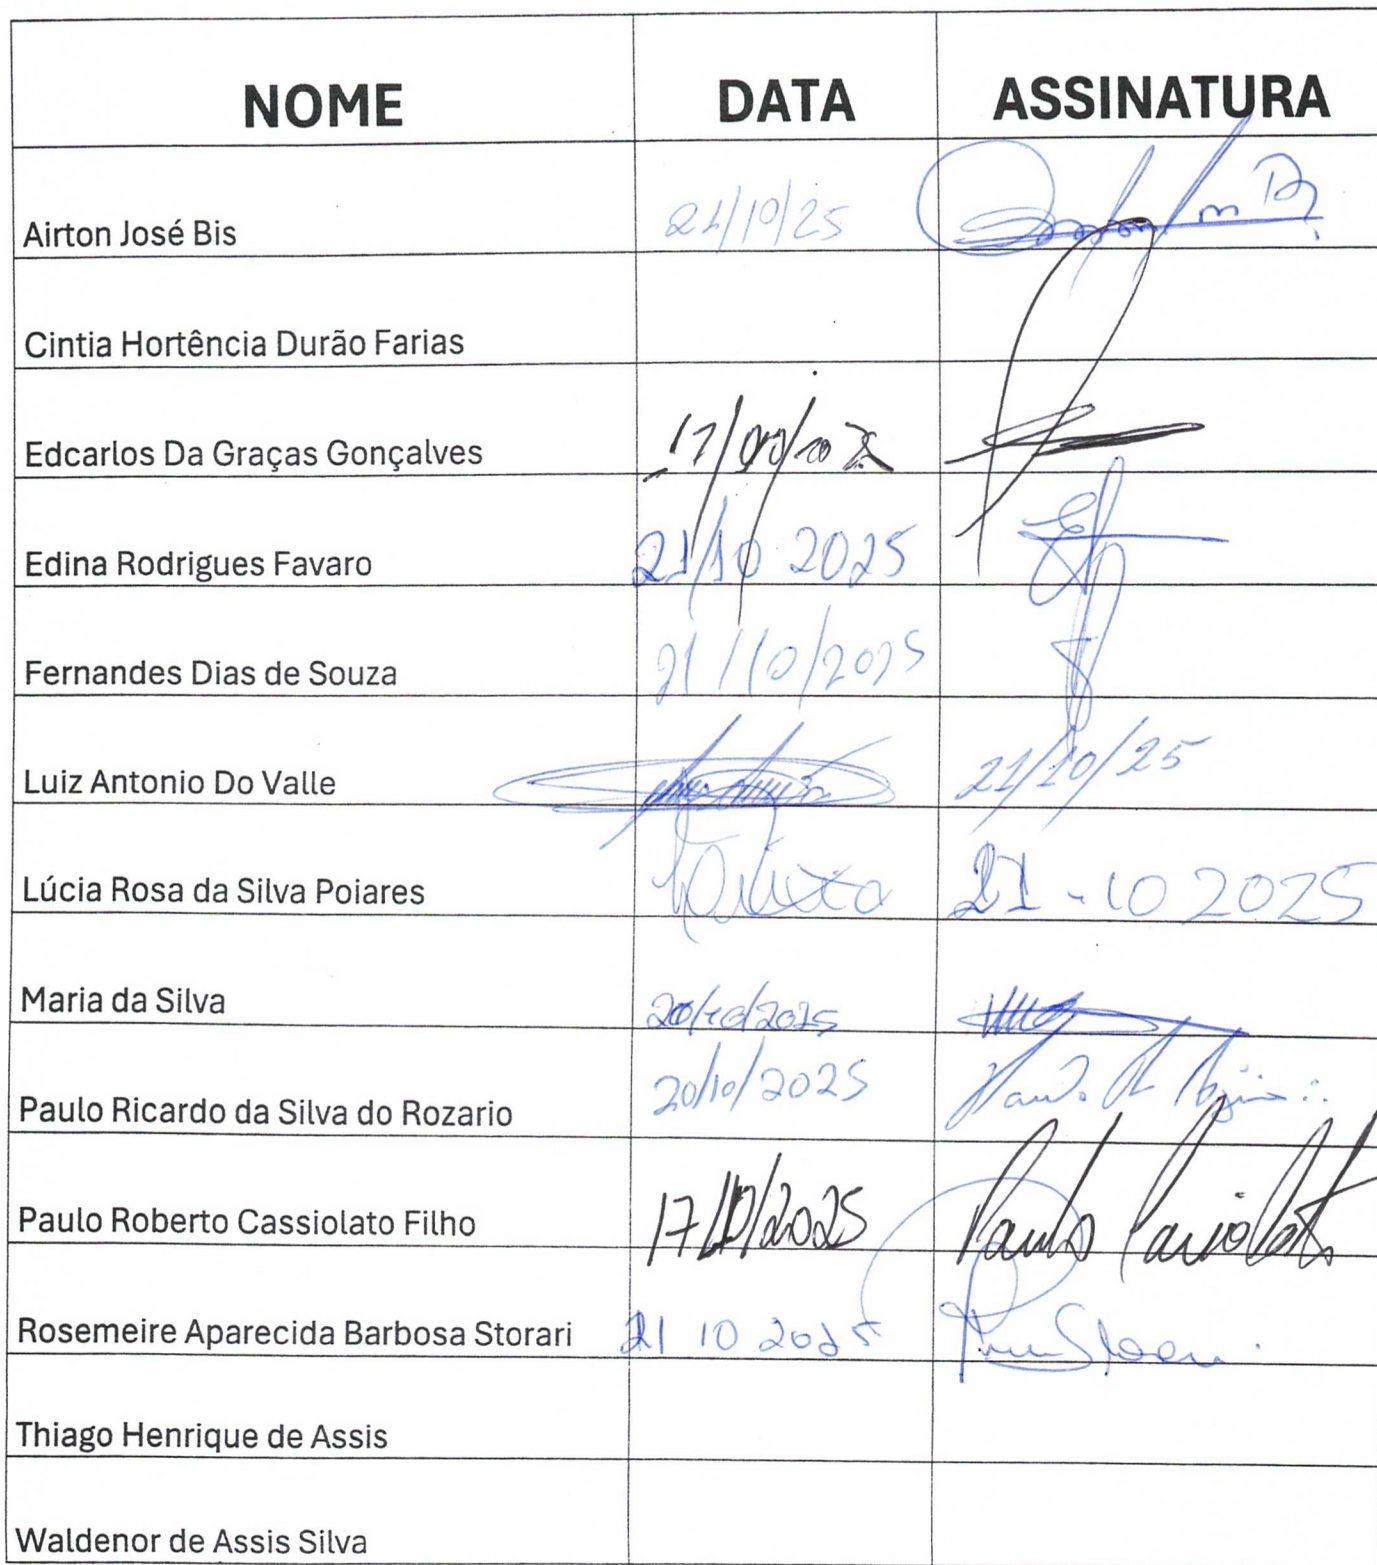 NOME DATA ASSINATURA
Airton José Bis 21/10/25
Cintia Hortência Durão Farias
Edcarlos Da Graças Gonçalves
Edina Rodrigues Favaro 21/10 2025
Fernandes Dias de Souza 21/10/2025
Luiz Antonio Do Valle 21/10/25
Lúcia Rosa da Silva Poiares 21-10 2025
Maria da Silva 20/10/2025
Paulo Ricardo da Silva do Rozario 20/10/2025
Paulo Roberto Cassiolato Filho 17/10/2025 Paulo Cassiolato
Rosemeire Aparecida Barbosa Storari 21 10 2025
Thiago Henrique de Assis
Waldenor de Assis Silva